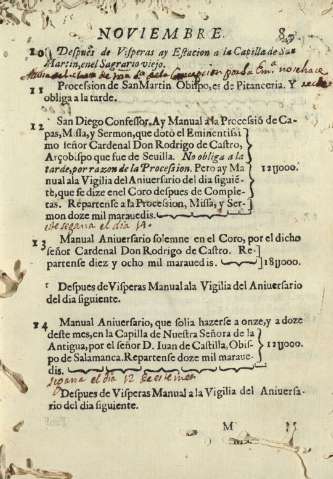 NOVIEMBRE. 85
10 Despues de Visperas ay Estacion a la Capilla de San
Martin, en el Sagrario viejo.
11 Procession de San Martin Obispo, es de Pitanceria. Y
obliga a la tarde.
12 San Diego Confessor. Ay Manual a la Processiō de Ca-
pas, Missa, y Sermon, que dotó el Eminentissi
mo señor Cardenal Don Rodrigo de Castro,
Arçobispo que fue de Seuilla. No obliga a la
tarde, por razon de la Procession. Pero ay Ma
nual a la Vigilia del Aniversario del dia siguié
te, que se dize en el Coro despues de Comple-
tas. Repartense a la Procession, Missa, y Ser-
mon doze mil marauedis.
12U000.
este se gana el dia 14.
13 Manual Aniuersario solemne en el Coro, por el dicho
señor Cardenal Don Rodrigo de Castro. Re-
partense diez y ocho mil marauedis.
18U000.
Despues de Visperas Manual a la Vigilia del Aniuersario
del dia siguiente.
14 Manual Aniversario, que solia hazerse a onze, y a doze
deste mes, en la Capilla de Nuestra Señora de la
Antigua, por el señor D. Iuan de Castilla, Obis-
po de Salamanca. Repartense doze mil maraue
dis.
12U000.
se gana el dia 12 de este mes
Despues de Visperas Manual a la Vigilia del Aniversa-
rio del dia siguiente.
M